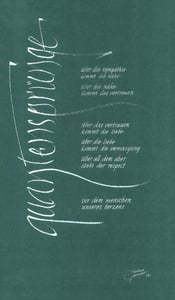 quantensprünge
über die sympathie
kommt die nähe
über die nähe
kommt das vertrauen
über das vertrauen
kommt die liebe
über die liebe
kommt die vereinigung
über all dem aber
steht der respect
vor dem menschen
unseres herzens